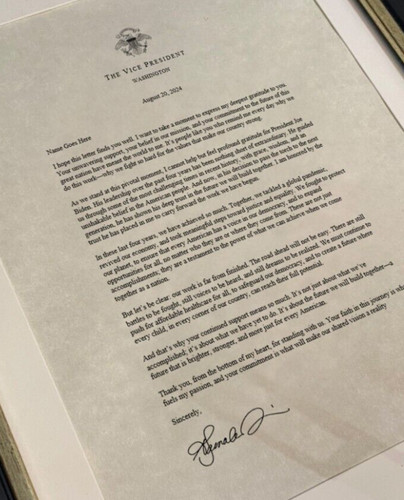 THE VICE PRESIDENT
WASHINGTON
August 20, 2024
Name Goes Here
I hope this letter finds you well. I want to take a moment to express my deepest gratitude to you.
Your unwavering support, your belief in our mission, and your commitment to the future of this
great nation have meant the world to me. It's people like you who remind me every day why we
do this work—why we fight so hard for the values that make our country strong.
As we stand at this pivotal moment, I cannot help but feel profound gratitude for President Joe
Biden. His leadership over the past four years has been nothing short of extraordinary. He guided
us through some of the most challenging times in recent history, with grace, wisdom, and an
unshakable belief in the American people. And now, as his decision to pass the work to the next
generation, he has shown his deep trust in the future we will build together. I am honored by the
trust he has placed in me to carry forward the work we have begun.
In these last four years, we have achieved so much. Together, we tackled a global pandemic,
revived our economy, and took meaningful steps toward justice and equality. We fought to protect
our planet, to ensure that every American has a voice in our democracy, and to expand
opportunities for all, no matter who they are or where they come from. These are not just
accomplishments; they are a testament to the power of what we can achieve when we come
together as a nation.
But let's be clear: our work is far from finished. The road ahead will not be easy. There are still
battles to be fought, still voices to be heard, and still dreams to be realized. We must continue to
push for affordable healthcare for all, to safeguard our democracy, and to create a future where
every child, in every corner of our country, can reach their full potential.
And that's why your continued support means so much. It's not just about what we've
accomplished; it's about what we have yet to do. It's about the future we will build together—a
future that is brighter, stronger, and more just for every American.
Thank you, from the bottom of my heart, for standing with us. Your faith in this journey is what
fuels my passion, and your commitment is what will make our shared vision a reality
Sincerely,